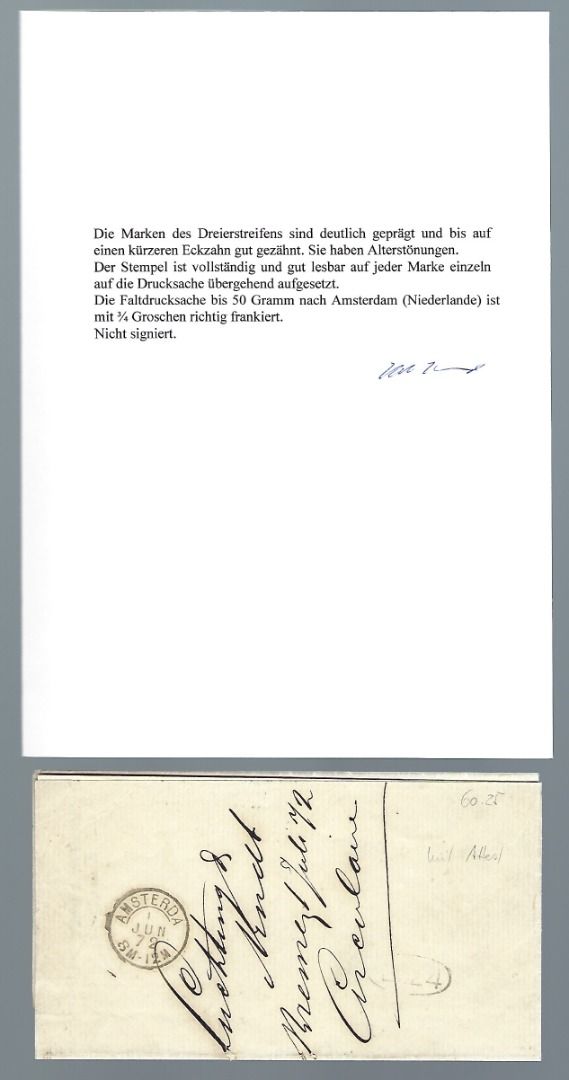 Die Marken des Dreierstreifens sind deutlich geprägt und bis auf
einen kürzeren Eckzahn gut gezähnt. Sie haben Alterstönungen.
Der Stempel ist vollständig und gut lesbar auf jeder Marke einzeln
auf die Drucksache übergehend aufgesetzt.
Die Faltdrucksache bis 50 Gramm nach Amsterdam (Niederlande) ist
mit ¾ Groschen richtig frankiert.
Nicht signiert.
60.25
mit Attest
AMSTERDA
1
JUN
72
8M-12M
Juli 72
Circulaire